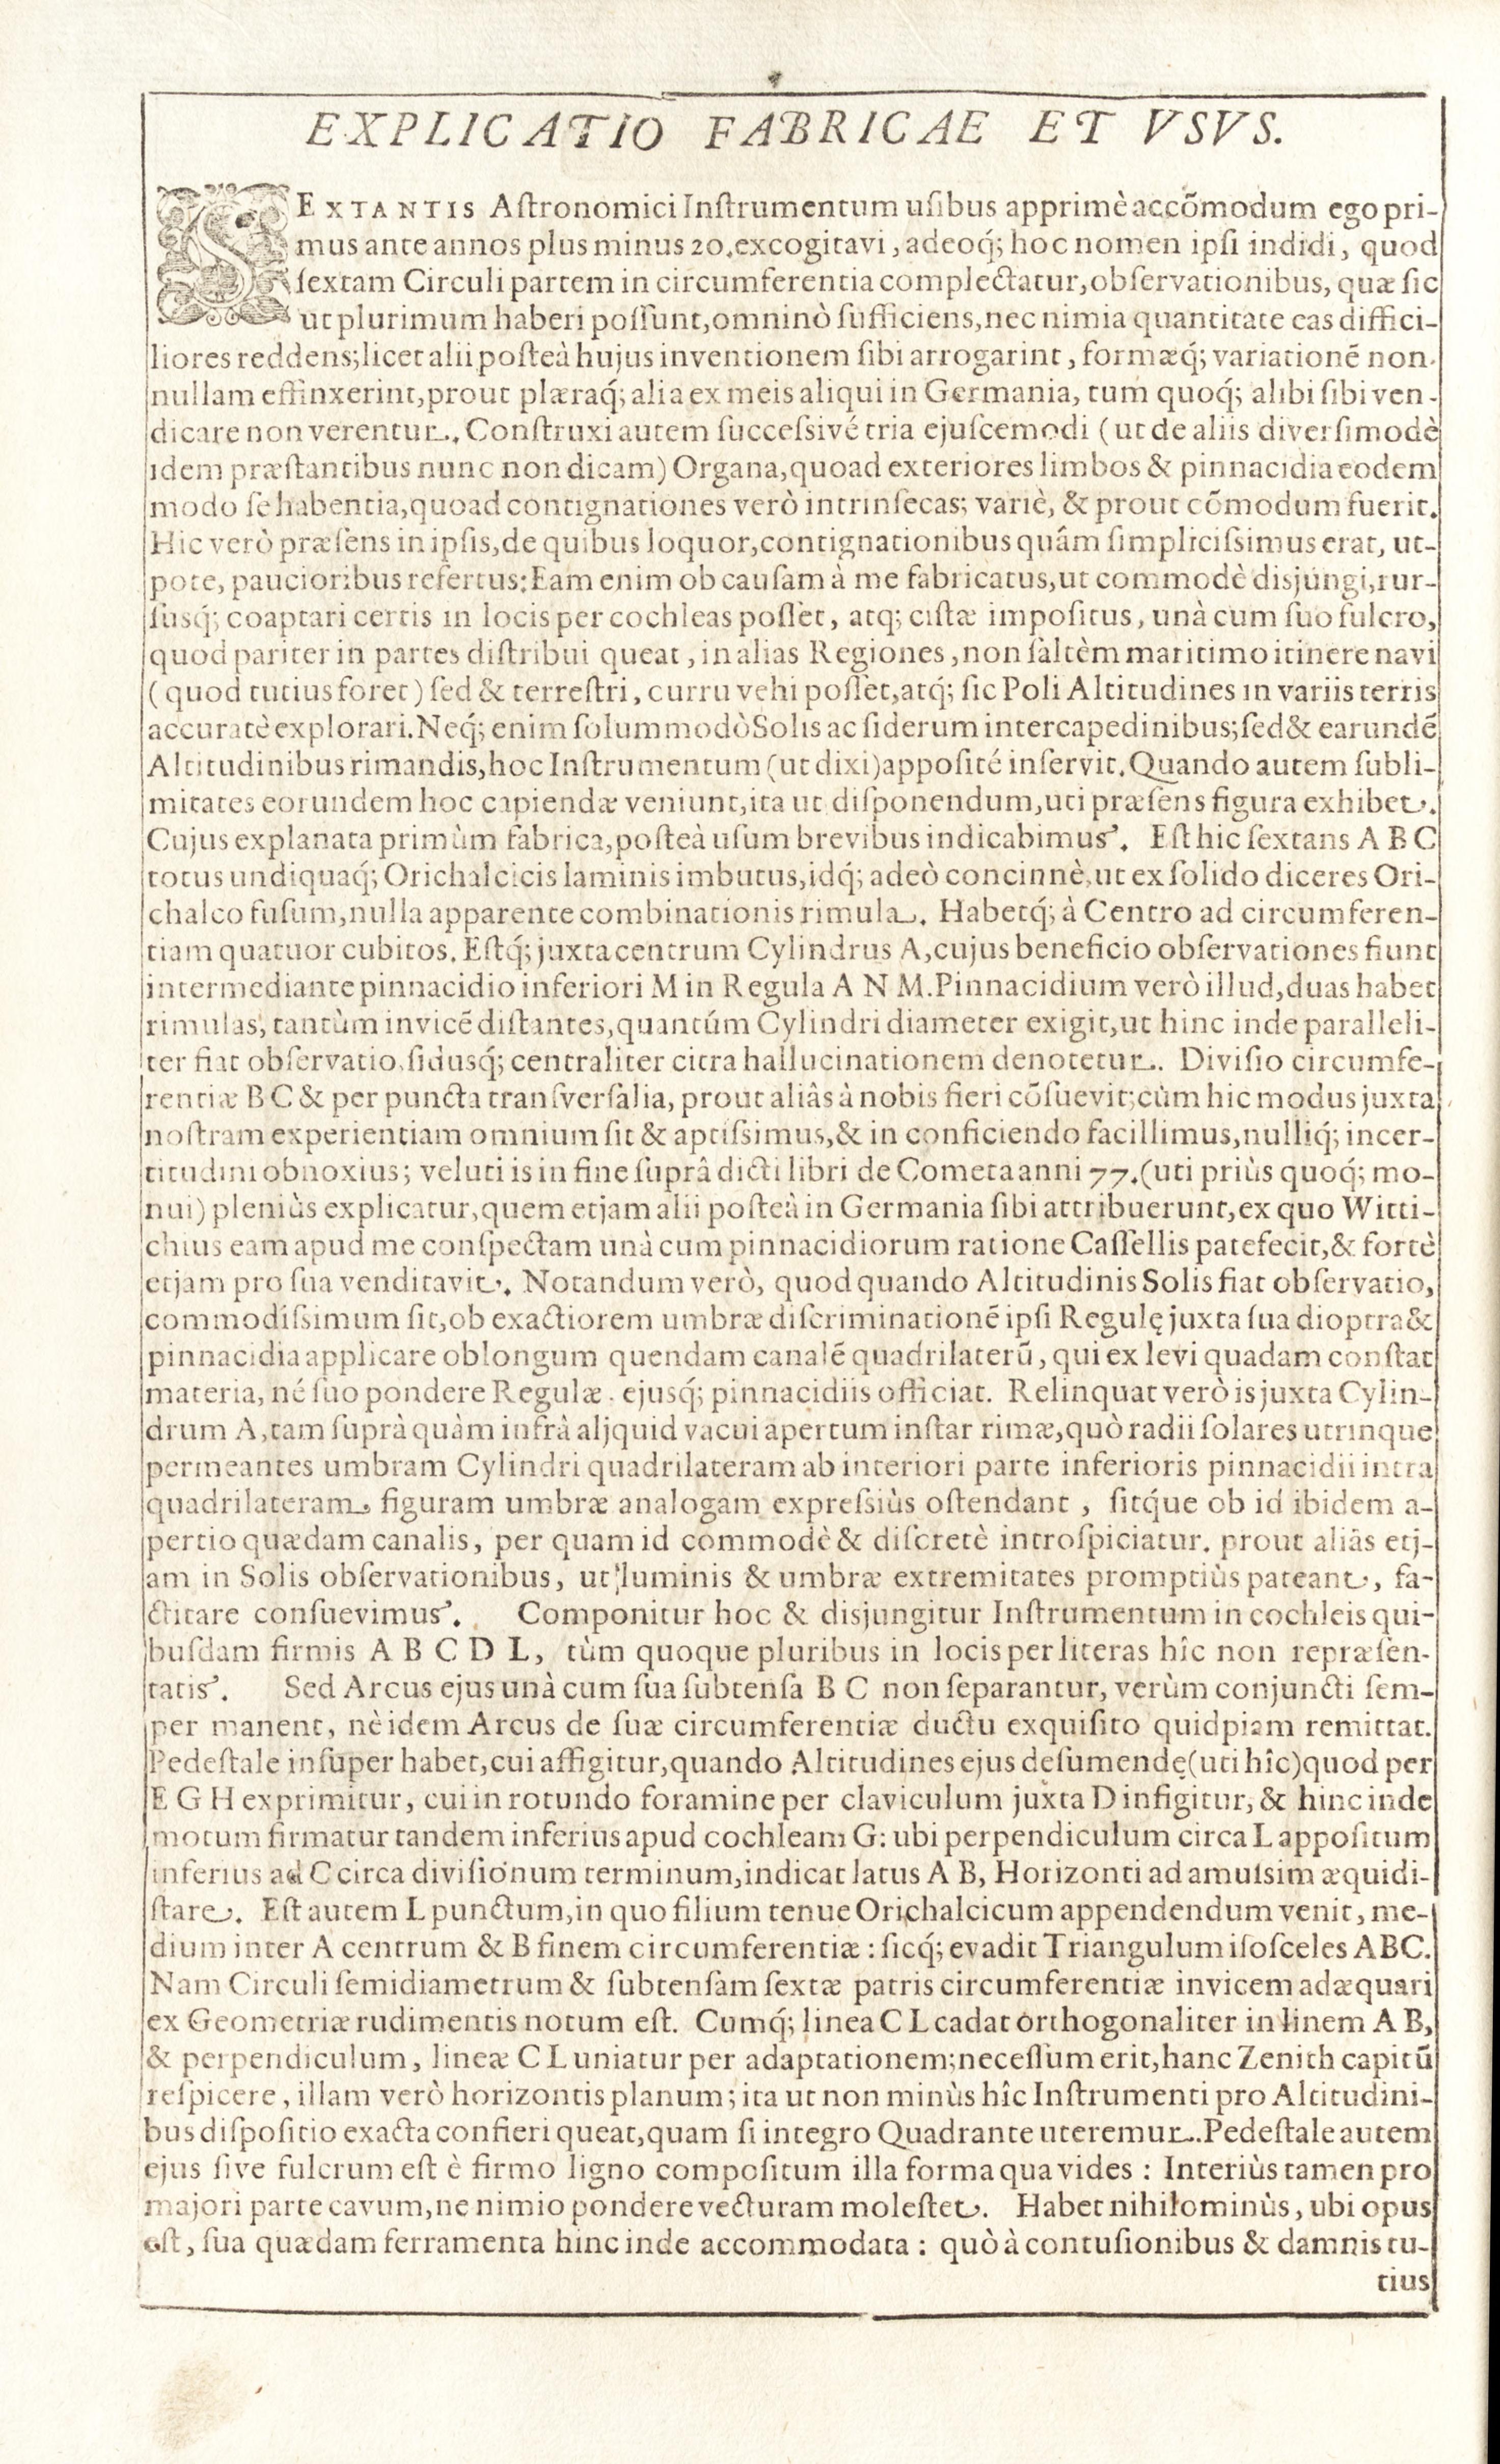 EXPLICATIO FABRICAE ET VSVS.
SEXTANTIS Aſtronomici Inſtrumentum uſibus apprimè accõmodum ego pri-
mus ante annos plus minus 20. excogitavi, adeoq́; hoc nomen ipſi indidi, quod
ſextam Circuli partem in circumferentia complectatur, obſervationibus, quæ ſic
ut plurimum haberi poſſunt, omninò ſufficiens, nec nimia quantitate eas diffici-
liores reddens; licet alii poſteà hujus inventionem ſibi arrogarint, formæq́; variationẽ non-
nullam effinxerint, prout plæraq́; alia ex meis aliqui in Germania, tum quoq́; alibi ſibi ven-
dicare non verentur. Conſtruxi autem ſucceſsivé tria ejuſcemodi (ut de aliis diverſimodè
idem præſtantibus nunc non dicam) Organa, quoad exteriores limbos & pinnacidia eodem
modo ſe habentia, quoad contignationes verò intrinſecas; variè, & prout cõmodum fuerit.
Hic verò præſens in ipſis, de quibus loquor, contignationibus quâm ſimpliciſsimus erat, ut-
pote, paucioribus refertus: Eam enim ob cauſam à me fabricatus, ut commodè disjungi, rur-
ſusq́; coaptari certis in locis per cochleas poſſet, atq; ciſtæ impoſitus, unà cum ſuo fulcro,
quod pariter in partes diſtribui queat, in alias Regiones, non ſaltèm maritimo itinere navi
(quod tutius foret) ſed & terreſtri, curru vehi poſſet, atq́; ſic Poli Altitudines in variis terris
accuratè explorari. Neq́; enim ſolummodò Solis ac ſiderum intercapedinibus; ſed & earundẽ
Altitudinibus rimandis, hoc Inſtrumentum (ut dixi) appoſité inſervit. Quando autem ſubli-
mitates eorundem hoc capiendæ veniunt, ita ut diſponendum, uti præſens figura exhibet.
Cujus explanata primùm fabrica, poſteà uſum brevibus indicabimus. Eſt hic ſextans A B C
totus undiquaq́; Orichalcicis laminis imbutus, idq́; adeò concinnè, ut ex ſolido diceres Ori-
chalco fuſum, nulla apparente combinationis rimula. Habetq́; à Centro ad circumferen-
tiam quatuor cubitos. Eſtq́; juxta centrum Cylindrus A, cujus beneficio obſervationes fiunt
intermediante pinnacidio inferiori M in Regula A N M. Pinnacidium verò illud, duas habet
rimulas, tantùm invicẽ diſtantes, quantúm Cylindri diameter exigit, ut hinc inde paralleli-
ter fiat obſervatio, ſidusq́; centraliter citra hallucinationem denotetur. Diviſio circumfe-
rentiæ B C & per puncta tranſverſalia, prout aliâs à nobis fieri cõſuevit; cùm hic modus juxta
noſtram experientiam omnium ſit & aptiſsimus, & in conficiendo facillimus, nulliq́; incer-
titudini obnoxius; veluti is in fine ſuprâ dicti libri de Cometa anni 77. (uti priùs quoq́; mo-
nui) pleniùs explicatur, quem etjam alii poſteà in Germania ſibi attribuerunt, ex quo Witti-
chius eam apud me conſpectam unà cum pinnacidiorum ratione Caſſellis patefecit, & fortè
etjam pro ſua venditavit. Notandum verò, quod quando Altitudinis Solis fiat obſervatio,
commodiſsimum ſit, ob exactiorem umbræ diſcriminationẽ ipſi Regulę juxta ſua dioptra &
pinnacidia applicare oblongum quendam canalẽ quadrilaterũ, qui ex levi quadam conſtat
materia, né ſuo pondere Regulæ. ejusq́; pinnacidiis officiat. Relinquat verò is juxta Cylin-
drum A, tam ſuprà quàm infrà aljquid vacui apertum inſtar rimæ, quò radii ſolares utrinque
permeantes umbram Cylindri quadrilateram ab interiori parte inferioris pinnacidii intra
quadrilateram, figuram umbræ analogam expreſsiùs oſtendant, ſitq́ue ob id ibidem a-
pertio quædam canalis, per quam id commodè & diſcretè introſpiciatur. prout aliâs etj-
am in Solis obſervationibus, ut luminis & umbræ extremitates promptiùs pateant, fa-
ctitare conſuevimus. Componitur hoc & disjungitur Inſtrumentum in cochleis qui-
buſdam firmis A B C D L, tùm quoque pluribus in locis per literas hîc non repræſen-
tatis. Sed Arcus ejus unà cum ſua ſubtenſa B C non ſeparantur, verùm conjuncti ſem-
per manent, nè idem Arcus de ſuæ circumferentiæ ductu exquiſito quidpiam remittat.
Pedeſtale inſuper habet, cui affigitur, quando Altitudines ejus deſumendę (uti hîc) quod per
E G H exprimitur, cui in rotundo foramine per claviculum juxta D infigitur, & hinc inde
motum firmatur tandem inferius apud cochleam G: ubi perpendiculum circa L appoſitum
inferius ad C circa diviſionum terminum, indicat latus A B, Horizonti ad amuſsim æquidi-
ſtare. Eſt autem L punctum, in quo filium tenue Orichalcicum appendendum venit, me-
dium inter A centrum & B finem circumferentiæ: ſicq́; evadit Triangulum iſoſceles ABC.
Nam Circuli ſemidiametrum & ſubtenſam ſextæ patris circumferentiæ invicem adæquari
ex Geometriæ rudimentis notum eſt. Cumq́; linea C L cadat orthogonaliter in linem A B,
& perpendiculum, lineæ C L uniatur per adaptationem; neceſſum erit, hanc Zenith capitũ
reſpicere, illam verò horizontis planum; ita ut non minùs hîc Inſtrumenti pro Altitudini-
bus diſpoſitio exacta confieri queat, quam ſi integro Quadrante uteremur. Pedeſtale autem
ejus ſive fulcrum eſt è firmo ligno compoſitum illa forma qua vides: Interiùs tamen pro
majori parte cavum, ne nimio pondere vecturam moleſtet. Habet nihilominùs, ubi opus
eſt, ſua quædam ferramenta hinc inde accommodata: quò à contuſionibus & damnis tu-
tius